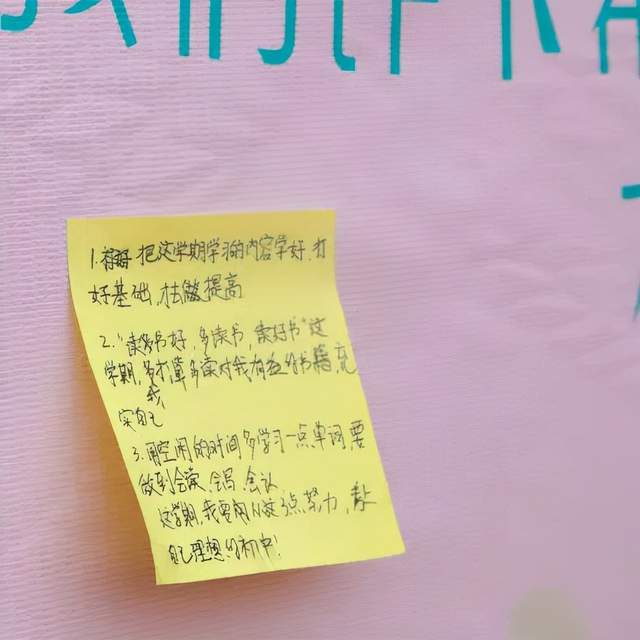 1. 把这学期学习的内容学好,打
好基础,在做提高
2."读书好,多读书,读好书"这
学期,我打算多读对我有益的书籍,充
实自己
3.用空闲的时间多学习一点单词,要
做到会读,会写,会认
这学期,我要朝从这3点努力,考上
自己理想的初中!